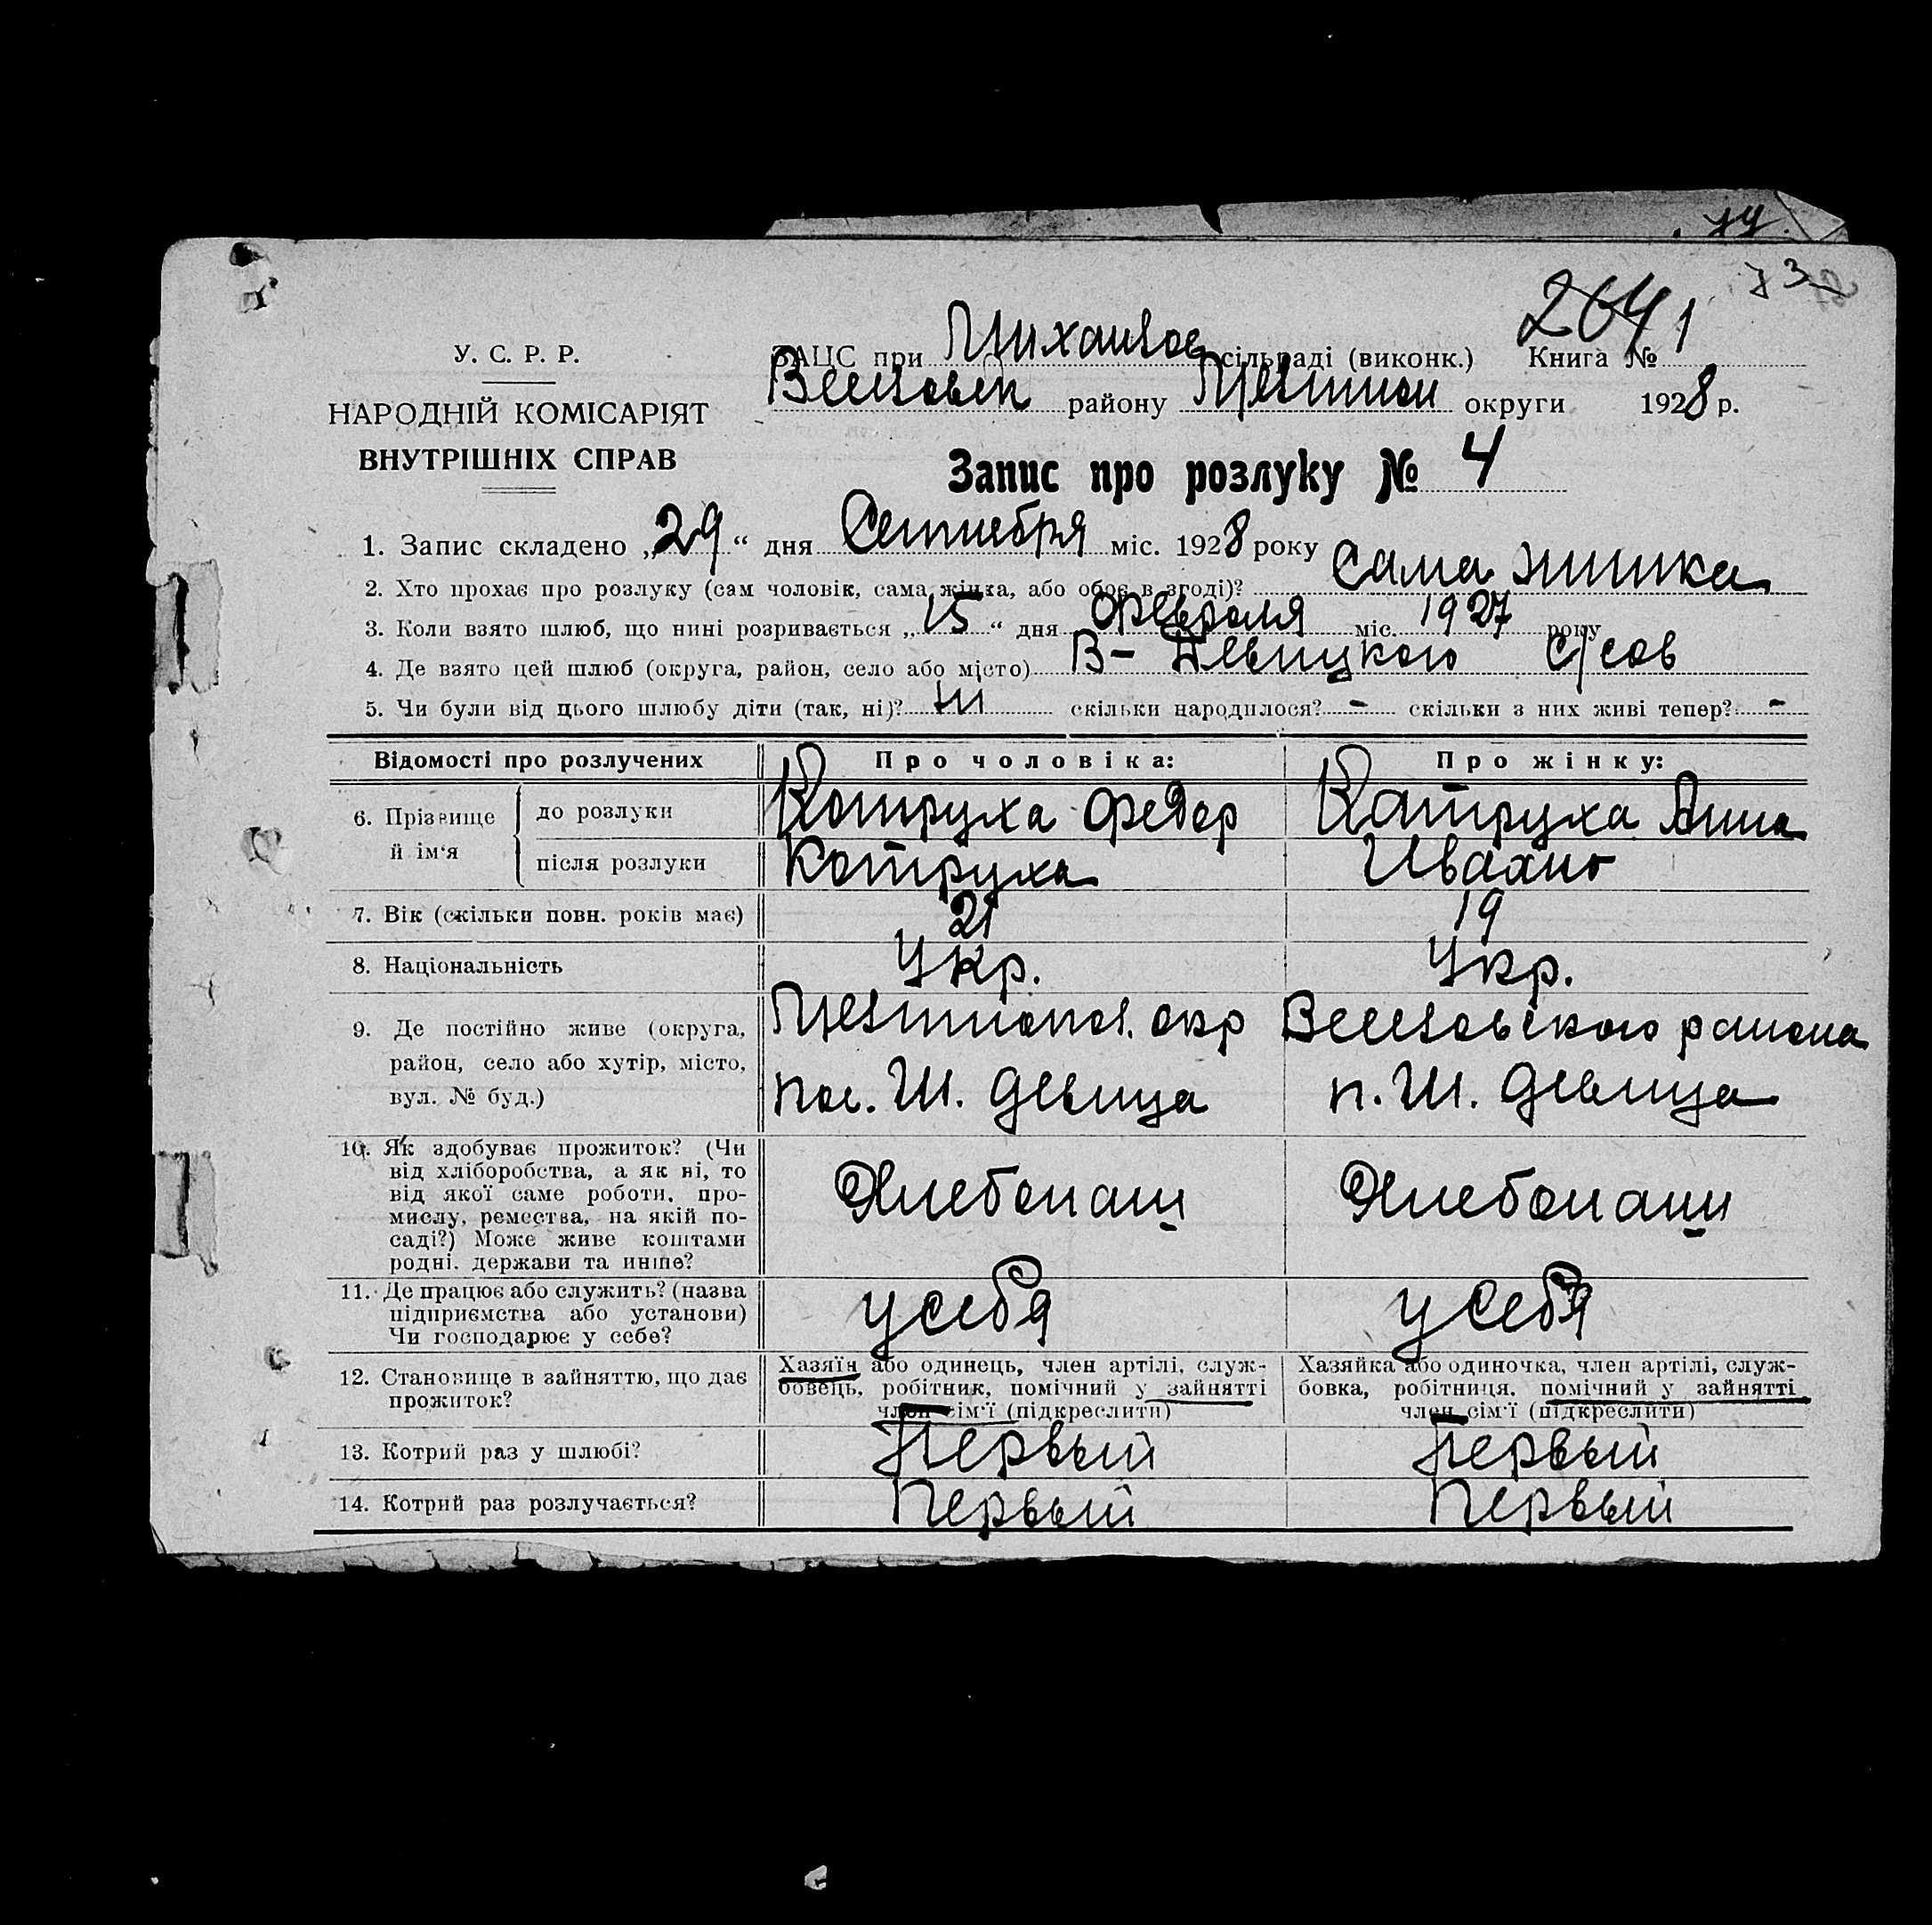 74
73
264 1
У. С. Р. Р.
НАРОДНІЙ КОМІСАРІЯТ
ВНУТРІШНІХ СПРАВ
ЗАЦС при Михайлов сільраді (виконк.) Книга №
району округи 1928 р.
Запис про розлуку № 4
1. Запис складено „29“ дня Сентября міс. 1928 року
2. Хто прохає про розлуку (сам чоловік, сама жінка, або обоє в згоді)? Сама жинка
3. Коли взято шлюб, що нині розривається „15“ дня Февраля міс. 1927 року
4. Де взято цей шлюб (округа, район, село або місто) В- с/сов
5. Чи були від цього шлюбу діти (так, ні)? ни скільки народилося? - скільки з них живі тепер? -
Відомості про розлучених Про чоловіка: Про жінку:
6. Прізвище й ім‘я до розлуки Котруха Федор Котруха Анна
після розлуки Котруха Ивахно
7. Вік (скільки повн. років має) 21 19
8. Національність Укр. Укр.
9. Де постійно живе (округа, район, село або хутір, місто, вул. № буд.) окр района
пос. Ш. Девица п. Ш. Девица
10. Як здобуває прожиток? (Чи від хліборобства, а як ні, то від якої саме роботи, промислу, ремества, на якій посаді?) Може живе коштами родні, держави та инше? Хлебопаш Хлебопаш
11. Де працює або служить? (назва підприємства або установи) Чи господарює у себе? у себя у себя
12. Становище в зайняттю, що дає прожиток? Хазяїн або одинець, член артілі, службовець, робітник, помічний у зайнятті член сім‘ї (підкреслити) Хазяйка або одиночка, член артілі, службовка, робітниця, помічний у зайнятті член сім‘ї (підкреслити)
13. Котрий раз у шлюбі? Первый Первый
14. Котрий раз розлучається? Первый Первый